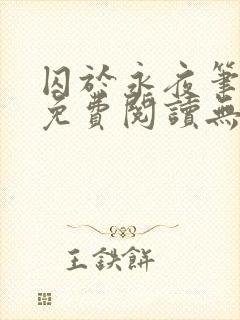 囚於永夜筆
免費閱讀無
王鉄餅